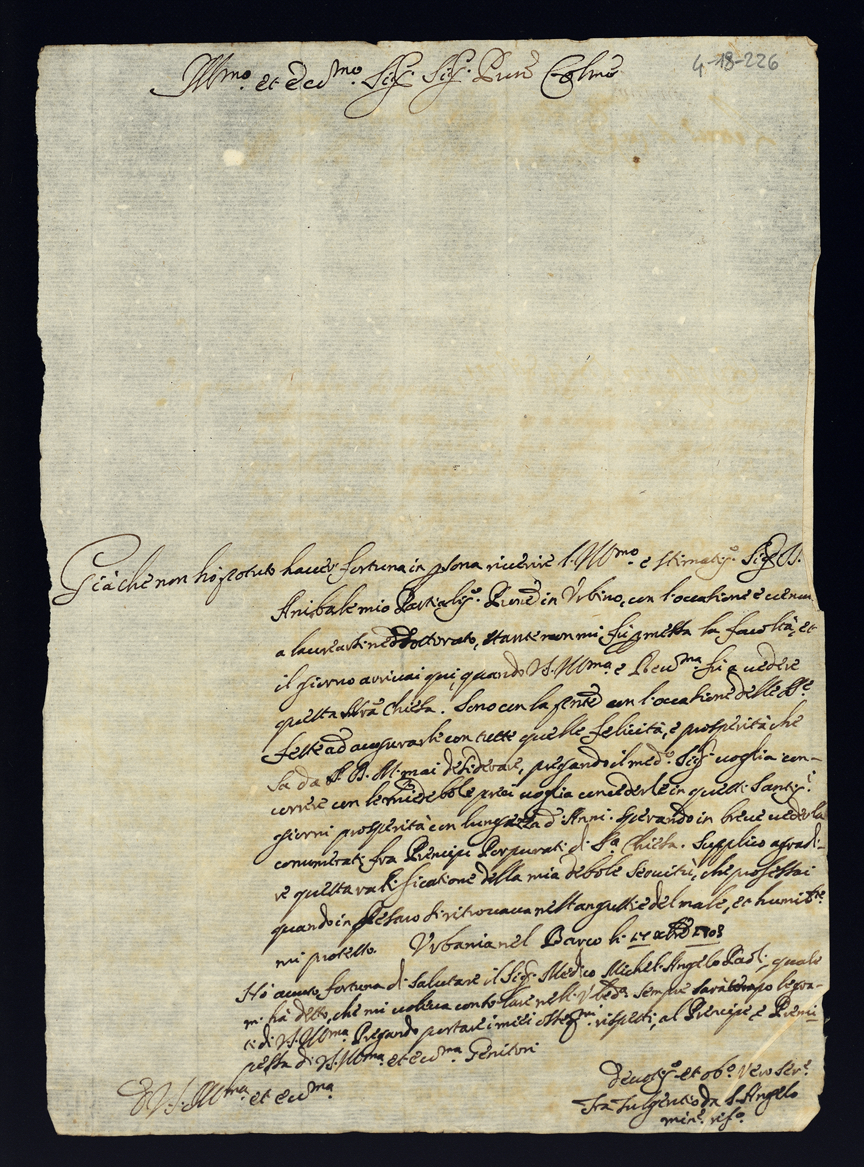 4-18-226
Ill.mo et Ecc.mo Sig.r Sig.r Pron Col.mo
Già che non hò potuto haver fortuna in psona riverire l'Ill.mo e stimatis.o Sig.r D.
Anibale mio Partialis.o Prone in Urbino, con l'occatione è
a laurearsi nel Dottorato, stante non mi fu pmessa la facoltà, et
il giorno arrivai qui, quando V.S. Ill.ma e Rev.ma fu a vedere
questa nrã Chiesa. Sono con la pñte con l'occatione delle SS.e
feste ad augurarle con tutte quelle felicità, e prosperità che
sa da S. D. M. mai desiderare, pregando il med.o Sig.r voglia con-
correre con le mie debole preci voglia concederle in questi Santis.i
giorni prosperità con lunghezza d'Anni. Sperando in breve vederla
conumerati fra Principi Porporati di S.a Chiesa. Supplico agradi-
re questa ratificatione della mia debole Servitù, che professai
quando in Pesaro si ritrovava nell'angustie del male, et humil.te
mi protesto. Urbania nel Barco li 17 xbre 1703
Hò avuto fortuna di salutare il Sig.r Medico Michel Angelo Paoli, quale
m'hà detto, che mi voleva condolere nell' sempre sarà tempo le gra-
tie di V.S. Ill.ma Pregando portare i miei osseq.mi rispetti, al Principe, e Princi-
pessa di V.S. Ill.ma et Ecc.ma Genitori
Di V.S. Ill.ma et Ecc.ma
Devotis.o et obb.o vero Ser.e
Fra Fulgentio da S. Angelo
min.e rif.o